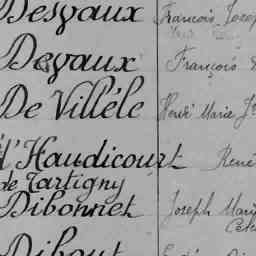 Desvaux François Josep
Devaux François
De Villéle Henri Marie J
d'Haudicourt René
de Tartigny
Dibonnet Joseph Mari
Dibout